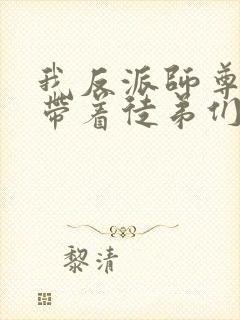 我反派师尊
带着徒弟们
黎清